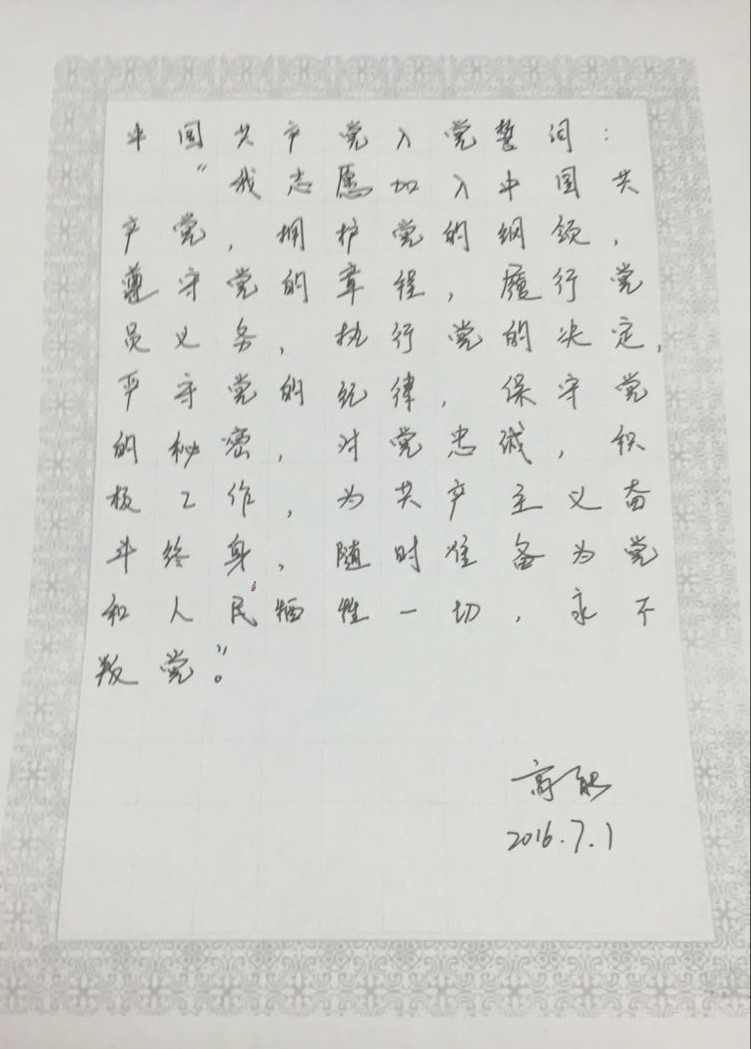 中国共产党入党誓词：
“我志愿加入中国共
产党，拥护党的纲领，
遵守党的章程，履行党
员义务，执行党的决定，
严守党的纪律，保守党
的秘密，对党忠诚，积
极工作，为共产主义奋
斗终身，随时准备为党
和人民牺牲一切，永不
叛党”。
高
2016.7.1